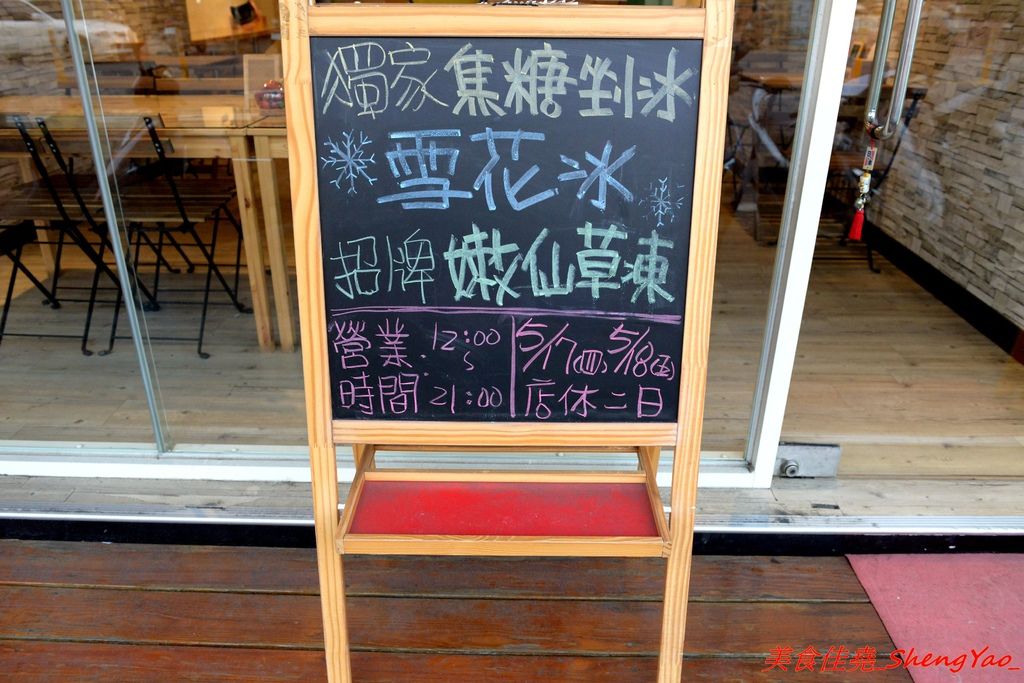 獨家 焦糖剉冰
雪花冰
招牌 嫩仙草凍
營業 12:00
時間: ~ 21:00
5/17(四)、5/18(五)
店休二日
美食佳堯_ShengYao_